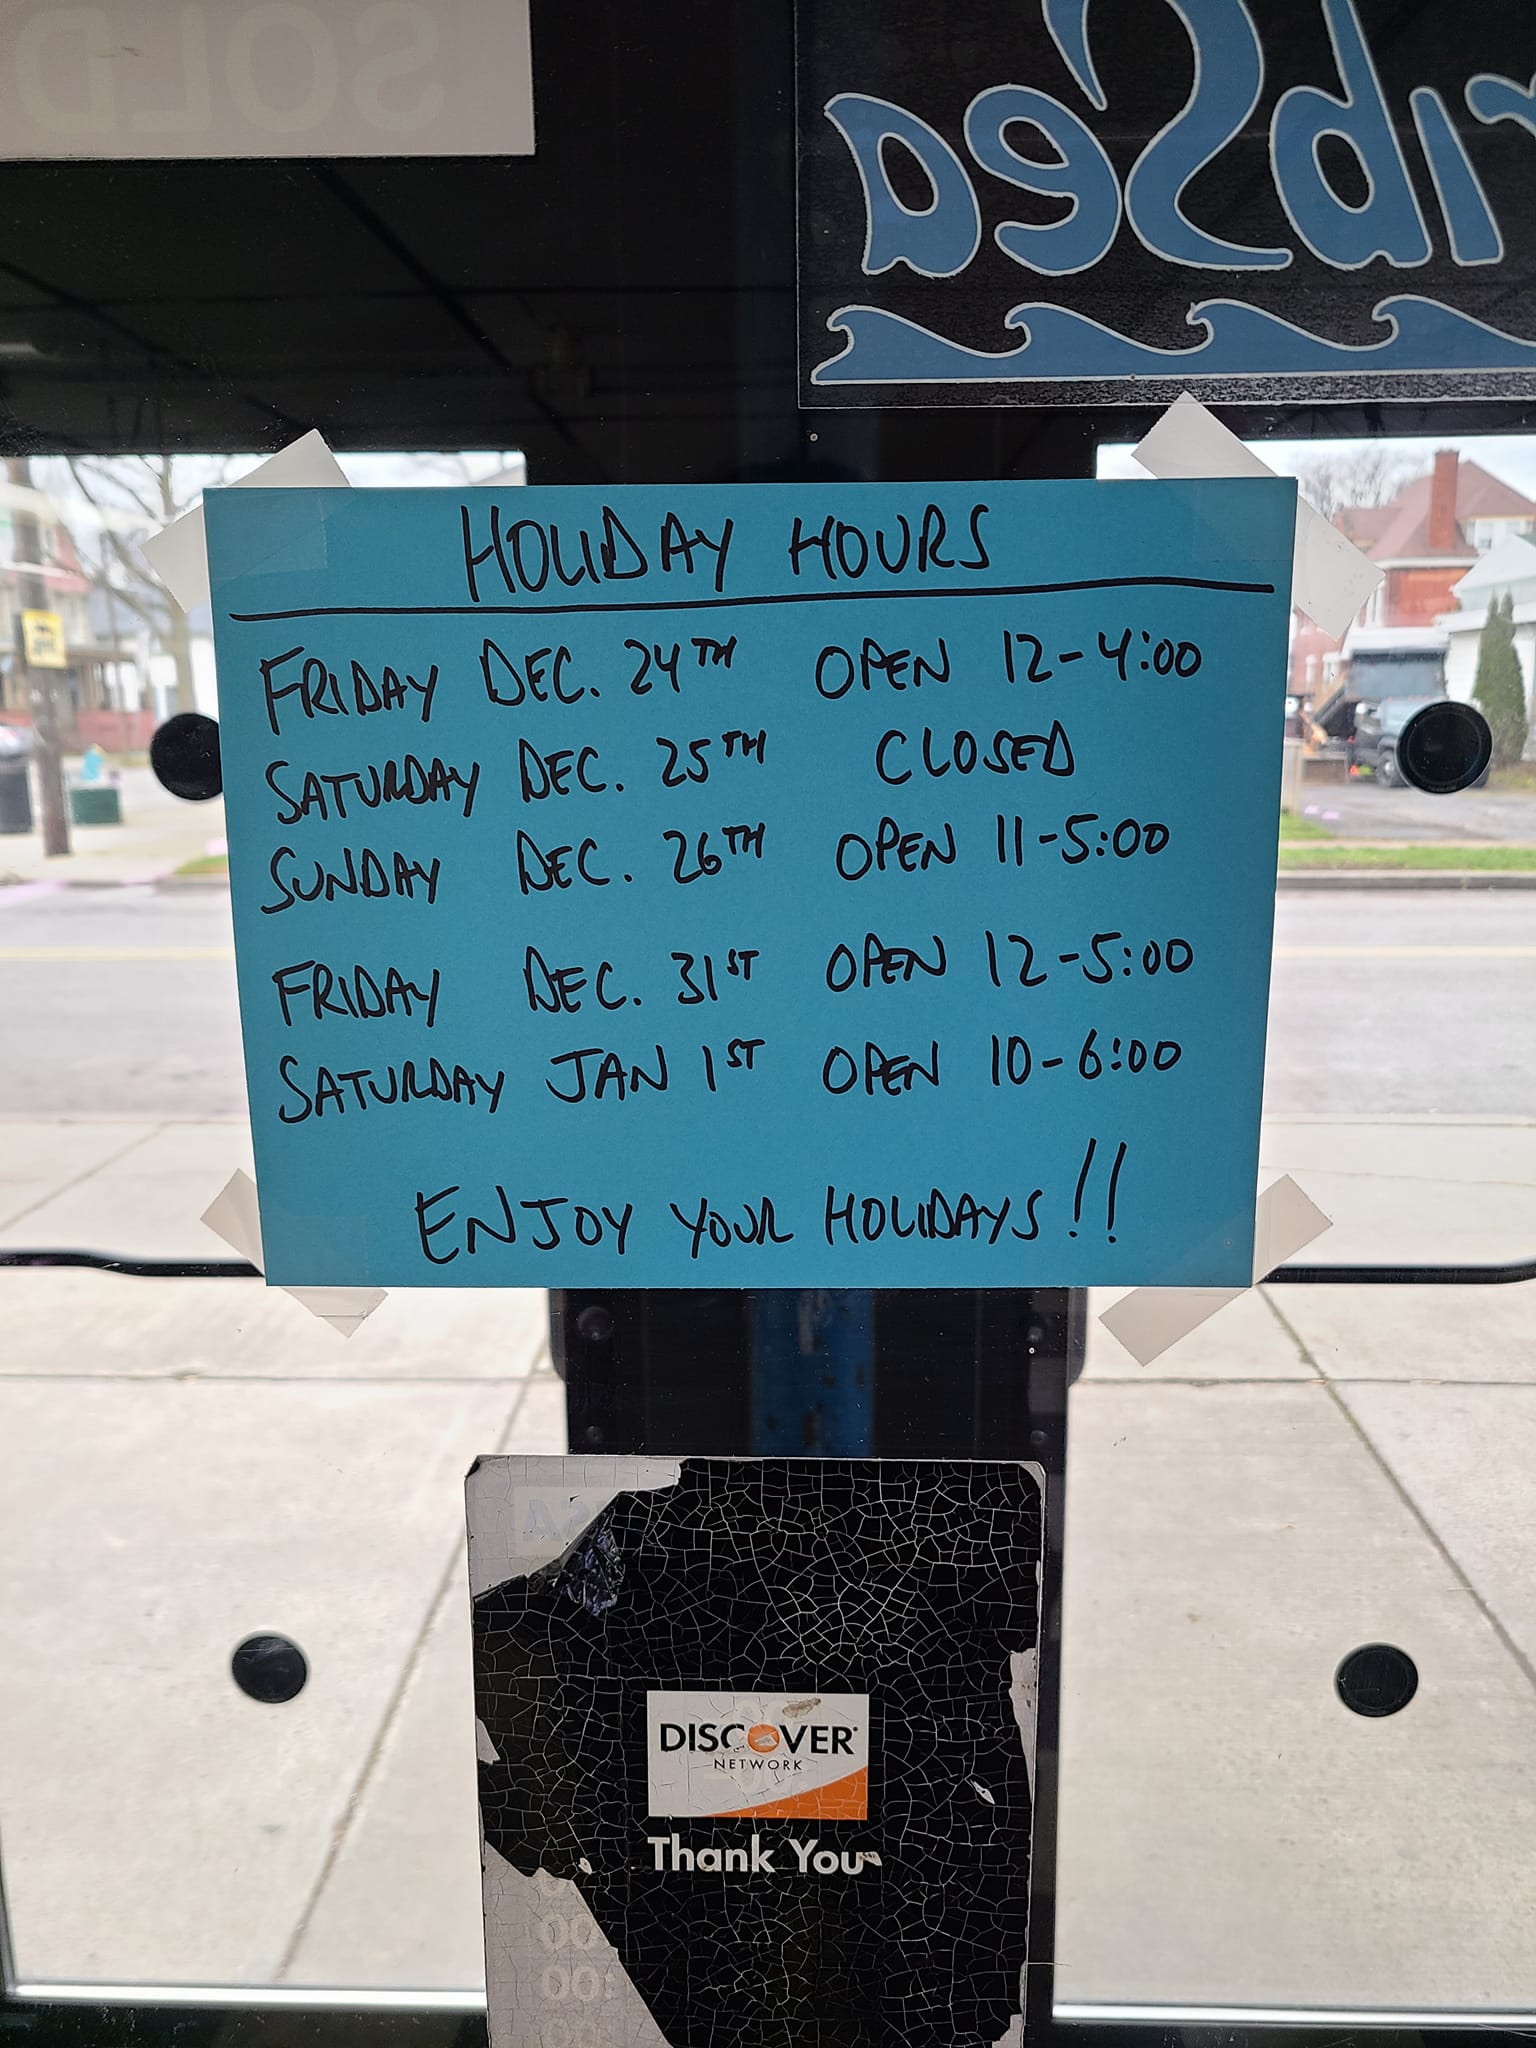 SOLD
ribSea
HOLIDAY HOURS
FRIDAY DEC. 24TH OPEN 12-4:00
SATURDAY DEC. 25TH CLOSED
SUNDAY DEC. 26TH OPEN 11-5:00
FRIDAY DEC. 31ST OPEN 12-5:00
SATURDAY JAN 1ST OPEN 10-6:00
ENJOY YOUR HOLIDAYS!!
DISCOVER
NETWORK
Thank You